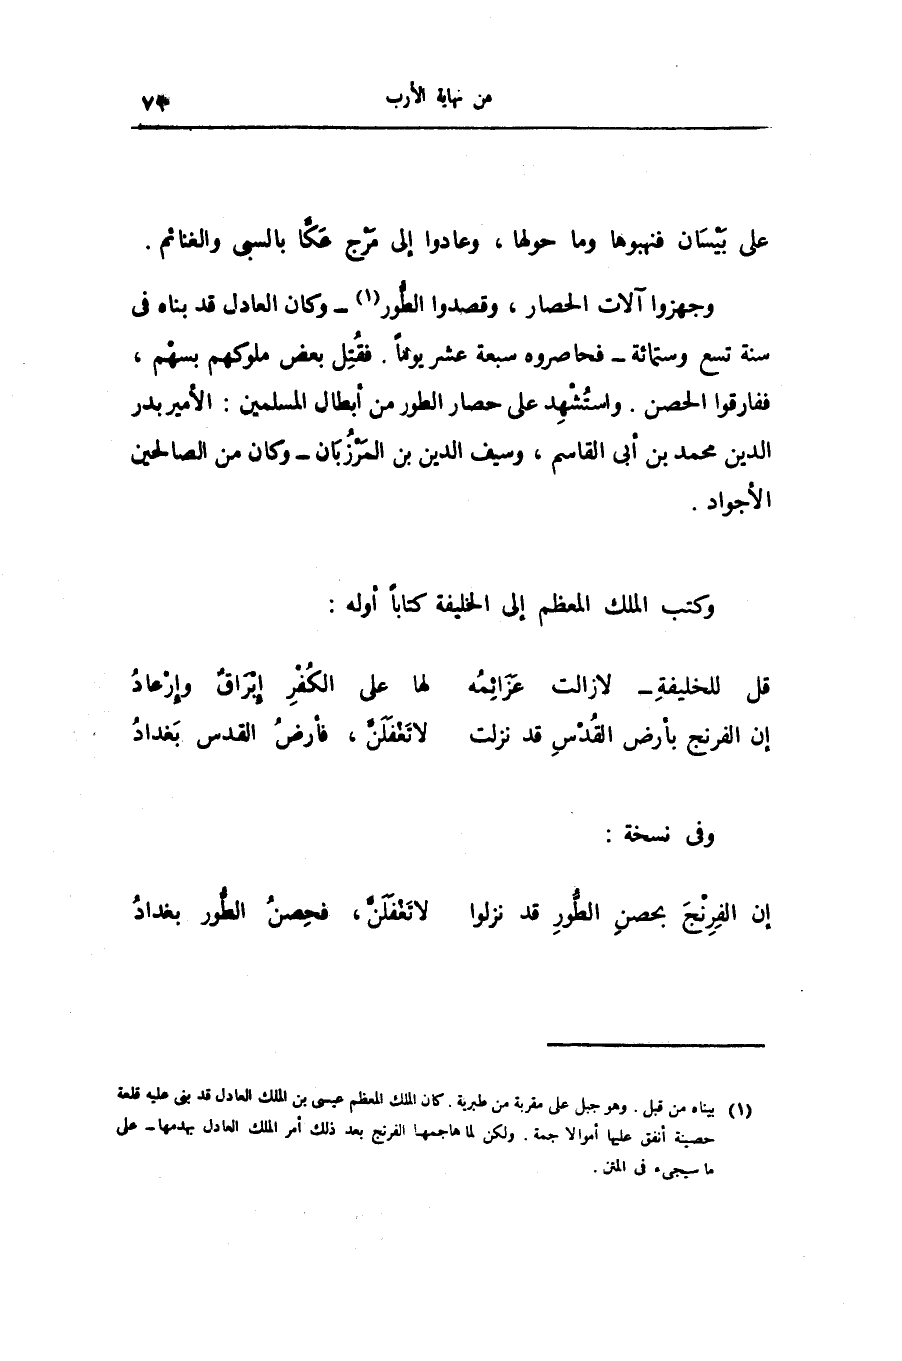 من نهاية الأرب ٧٣
على بَيْسَان فنهبوها وما حولها ، وعادوا إلى مَرْج عَكَّا بالسبى والغنائم .
وجهزوا آلات الحصار ، وقصدوا الطُّور(١) ــ وكان العادل قد بناه فى
سنة تسع وستمائة ــ فحاصروه سبعة عشر يوماً . فقُتِل بعض ملوكهم بسهْم ،
ففارقوا الحصن . واستُشْهِد على حصار الطور من أبطال المسلمين : الأمير بدر
الدين محمد بن أبى القاسم ، وسيف الدين بن المَرْزُبَان ــ وكان من الصالحين
الأجواد .
وكتب الملك المعظم إلى الخليفة كتاباً أوله :
قل للخليفةِ ــ لازالت عَزَائِمُه لها على الكُفْرِ إبْرَاقٌ وإرْعادُ
إن الفرنج بأرض القُدْسِ قد نزلت لاتَغْفَلَنَّ ، فأرضُ القدس بَغدادُ
وفى نسخة :
إن الفِرِنْجَ بحصنِ الطُّورِ قد نزلوا لاتَغْفَلَنَّ ، فحِصنُ الطُّور بغدادُ
(١) بيناه من قبل . وهو جبل على مقربة من طبرية . كان الملك المعظم عيسى بن الملك العادل قد بنى عليه قلعة
حصينة أنفق عليها أموالا جمة . ولكن لما هاجمها الفرنج بعد ذلك أمر الملك العادل بهدمها ــ على
ما سيجىء فى المتن .